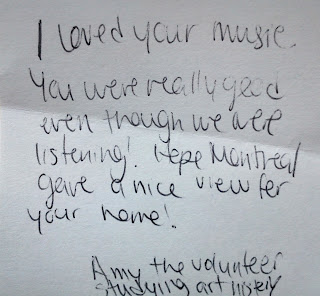 I loved your music.
You were really good
even though we were
listening! Hope Montreal
gave a nice view for
your home!
Amy the volunteer
studying art history